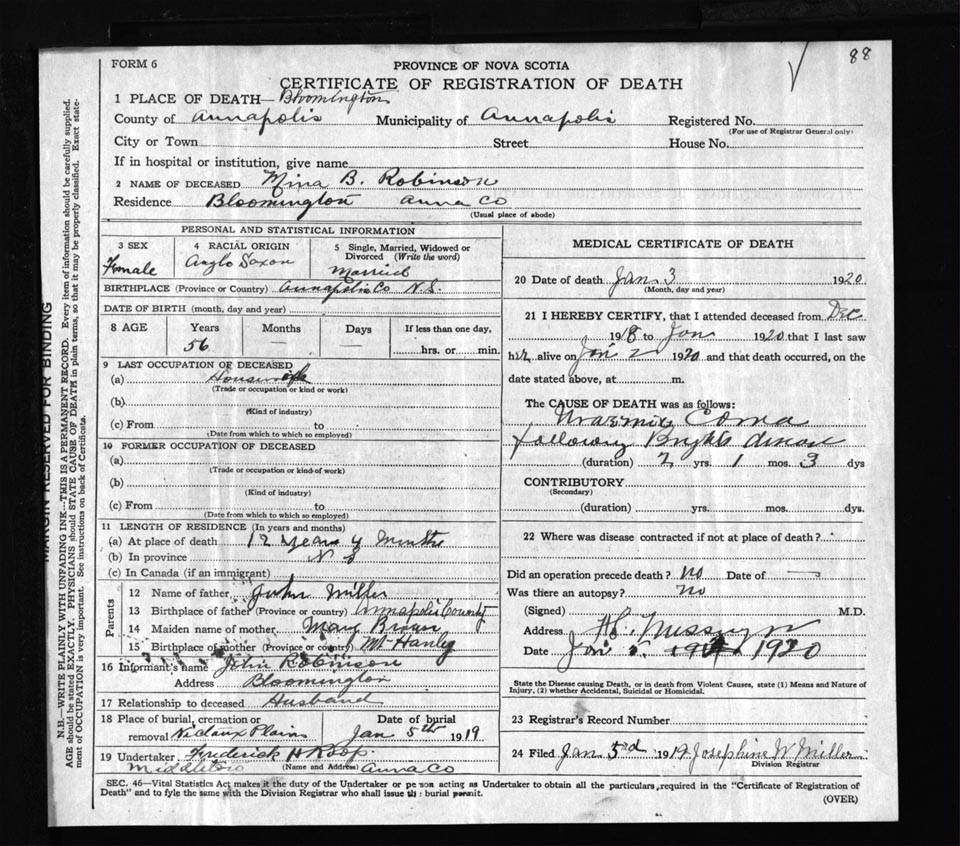 88
FORM 6
PROVINCE OF NOVA SCOTIA
CERTIFICATE OF REGISTRATION OF DEATH
1 PLACE OF DEATH— Bloomington
County of Annapolis Municipality of Annapolis Registered No.
(For use of Registrar General only)
City or Town Street House No.
If in hospital or institution, give name
2 NAME OF DECEASED Mina B. Robinson
Residence Bloomington Anna Co
(Usual place of abode)
PERSONAL AND STATISTICAL INFORMATION
3 SEX 4 RACIAL ORIGIN 5 Single, Married, Widowed or Divorced (Write the word)
Female Anglo Saxon Married
BIRTHPLACE (Province or Country) Annapolis Co N.S.
DATE OF BIRTH (month, day and year)
8 AGE Years Months Days If less than one day,
56 — — hrs. or min.
9 LAST OCCUPATION OF DECEASED
(a) Housework
(Trade or occupation or kind or work)
(b)
(Kind of industry)
(c) From to
(Date from which to which employed)
10 FORMER OCCUPATION OF DECEASED
(a)
(Trade or occupation or kind of work)
(b)
(Kind of industry)
(c) From to
(Date from which to which so employed)
11 LENGTH OF RESIDENCE (In years and months)
(a) At place of death 12 years 4 Months
(b) In province N S
(c) In Canada (if an immigrant)
Parents
12 Name of father John Miller
13 Birthplace of father (Province or country) Annapolis County
14 Maiden name of mother Mary Brown
15 Birthplace of mother (Province or country) Mt Hanly
16 Informant's name John Robinson
Address Bloomington
17 Relationship to deceased Husband
18 Place of burial, cremation or Date of burial
removal Nictaux Plains Jan 5th 1919
19 Undertaker Frederick H Roop
(Name and Address)
Middleton Anna Co
MEDICAL CERTIFICATE OF DEATH
20 Date of death Jan 3 1920
(Month, day and year)
21 I HEREBY CERTIFY, that I attended deceased from Dec
1918 to Jan 1920 that I last saw
h alive on Jan 2 1920 and that death occurred, on the
date stated above, at m.
The CAUSE OF DEATH was as follows:
Uraemic Coma
following Brights disease
(duration) 2 yrs. 1 mos. 3 dys
CONTRIBUTORY
(Secondary)
(duration) yrs. mos. dys.
22 Where was disease contracted if not at place of death?
Did an operation precede death? no Date of —
Was there an autopsy? no
(Signed) M.D.
Address
Date Jan 1920
State the Disease causing Death, or in death from Violent Causes, state (1) Means and Nature of
Injury, (2) whether Accidental, Suicidal or Homicidal.
23 Registrar's Record Number
24 Filed Jan 5rd 1919 Josephine W. Miller
Division Registrar
SEC. 46—Vital Statistics Act makes it the duty of the Undertaker or person acting as Undertaker to obtain all the particulars required in the "Certificate of Registration of
Death" and to fyle the same with the Division Registrar who shall issue the burial permit.
(OVER)
MARGIN RESERVED FOR BINDING
N.B.—WRITE PLAINLY WITH UNFADING INK—THIS IS A PERMANENT RECORD. Every item of information should be carefully supplied.
AGE should be stated EXACTLY. PHYSICIANS should STATE CAUSE OF DEATH in plain terms, so that it may be properly classified. Exact state-
ment of OCCUPATION is very important. See instructions on back of Certificate.